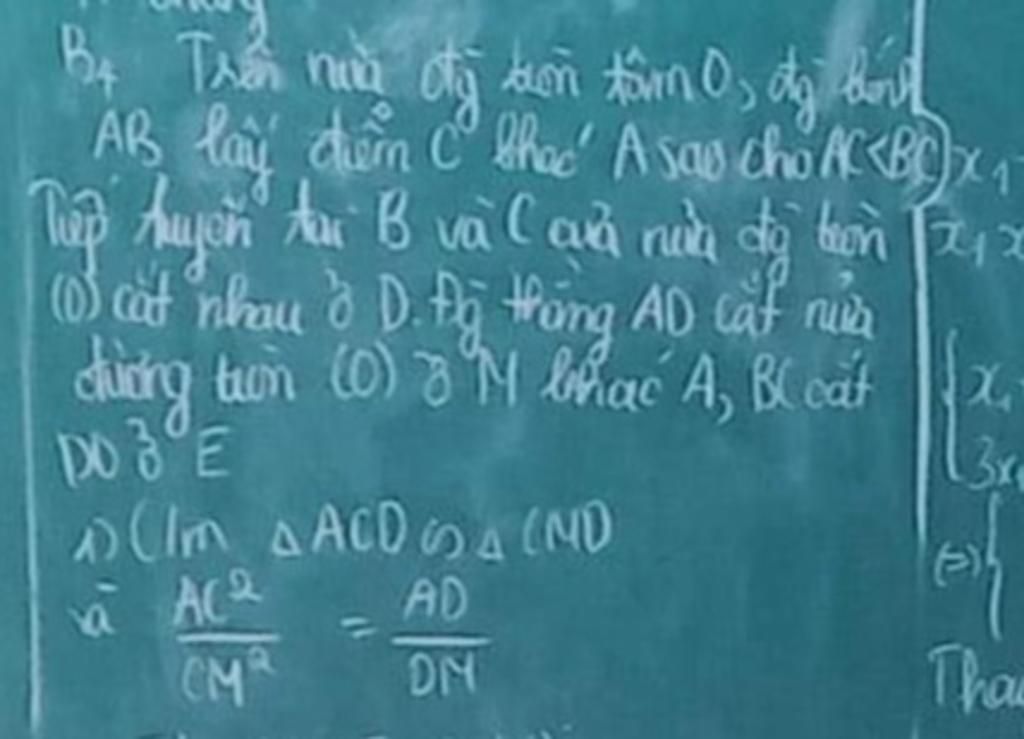 B4 Trên nửa đg tròn tâm O, đg kính
AB lấy điểm C khác A sao cho AC<BC
Tiếp tuyến tại B và C của nửa đg tròn
(O) cắt nhau ở D. Đg thẳng AD cắt nửa
đường tròn (O) ở M khác A, BC cắt
DO ở E
1) C/m △ACD ∽ △CMD
và AC²/CM² = AD/DM
x1
x1 x
{ x1
3x
(=) {
Thay